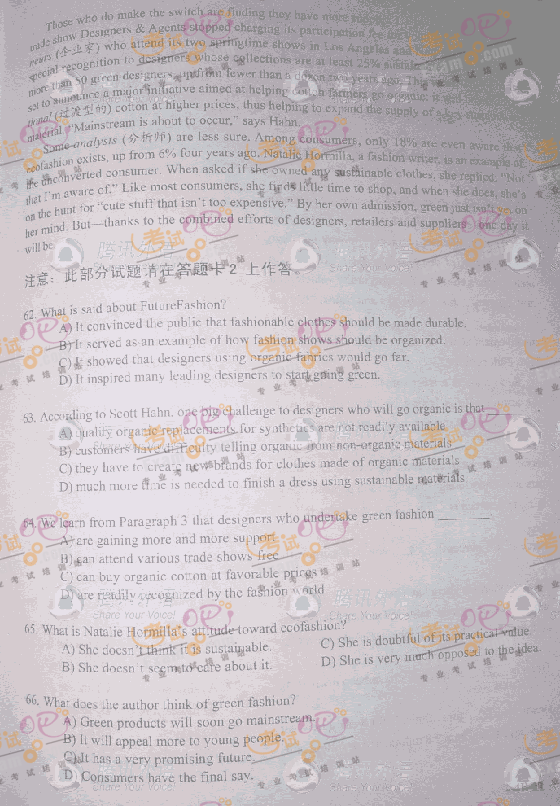 Those who do make the switch are finding they have more
made show Designers & Agents stopped charging its participation fee
years (企业家) who attend its two springtime shows in Los Angeles and
special recognition to designers whose collections are at least 25% sustainable
more than 50 green designers up from fewer than a dozen two years ago. This
set to announce a major initiative aimed at helping cotton farmers go organic
tional (过渡型的) cotton at higher prices, thus helping to expand the supply of
material. "Mainstream is about to occur," says Hahn.
Some analysts (分析师) are less sure. Among consumers, only 18% are even aware that
ecofashion exists, up from 6% four years ago. Natalie Hormilla, a fashion writer, is an example of
the unconverted consumer. When asked if she owned any sustainable clothes, she replied, "Not
that I'm aware of." Like most consumers, she finds little time to shop, and when she does, she's
on the hunt for "cute stuff that isn't too expensive." By her own admission, green just isn't yet on
her mind. But—thanks to the combined efforts of designers, retailers and suppliers—one day it
will be
注意:此部分试题请在答题卡 2 上作答
62. What is said about FutureFashion?
A) It convinced the public that fashionable clothes should be made durable.
B) It served as an example of how fashion shows should be organized.
C) It showed that designers using organic fabrics would go far.
D) It inspired many leading designers to start going green.
63. According to Scott Hahn, one big challenge to designers who will go organic is that
A) quality organic replacements for synthetics are not readily available
B) customers have difficulty telling organic from non-organic materials
C) they have to create new brands for clothes made of organic materials
D) much more time is needed to finish a dress using sustainable materials
64. We learn from Paragraph 3 that designers who undertake green fashion ___
A) are gaining more and more support
B) can attend various trade shows free
C) can buy organic cotton at favorable prices
D) are readily recognized by the fashion world
65. What is Natalie Hormilla's attitude toward ecofashion?
A) She doesn't think it is sustainable.
C) She is doubtful of its practical value.
B) She doesn't seem to care about it.
D) She is very much opposed to the idea.
66. What does the author think of green fashion?
A) Green products will soon go mainstream.
B) It will appeal more to young people.
C) It has a very promising future.
D) Consumers have the final say.